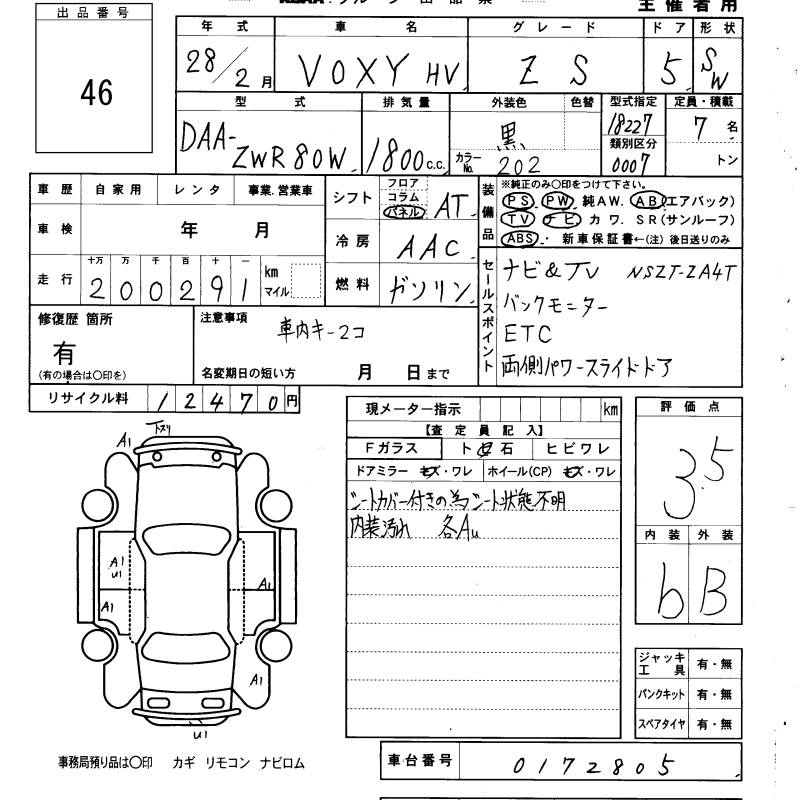 出品番号
46
主催者用
年式 車名 グレード ドア 形状
28/2月 VOXY HV ZS 5 SW
型式 排気量 外装色 色替 型式指定 定員・積載
DAA-ZWR80W 1800c.c. 黒 18227 7名
カラーNo. 202 類別区分 0007 トン
車歴 自家用 レンタ 事業.営業車
車検 年 月
走行 十万 万 千 百 十 一 km マイル
200291
シフト フロア コラム パネル AT
冷房 AAC
燃料 ガソリン
装備品
※純正のみ○印をつけて下さい。
PS. PW 純AW. AB(エアバック)
TV ナビ カワ. SR(サンルーフ)
ABS. 新車保証書←(注) 後日送りのみ
セールスポイント
ナビ&TV NSZT-ZA4T
バックモニター
ETC
両側パワースライドドア
修復歴 箇所
有
(有の場合は○印を)
注意事項
車内キー2コ
名変期日の短い方 月 日まで
リサイクル料 12470円
現メーター指示 km
【査定員記入】
Fガラス ト 石 ヒビワレ
ドアミラー キズ・ワレ ホイール(CP) キズ・ワレ
シートカバー付きの為シート状態不明
内装汚れ 各AU
評価点
3.5
内装 外装
b B
ジャッキ工具 有・無
パンクキット 有・無
スペアタイヤ 有・無
A1 下スリ
A1
U1
A1
A1
A1
U1
事務局預り品は○印 カギ リモコン ナビロム
車台番号 0172805